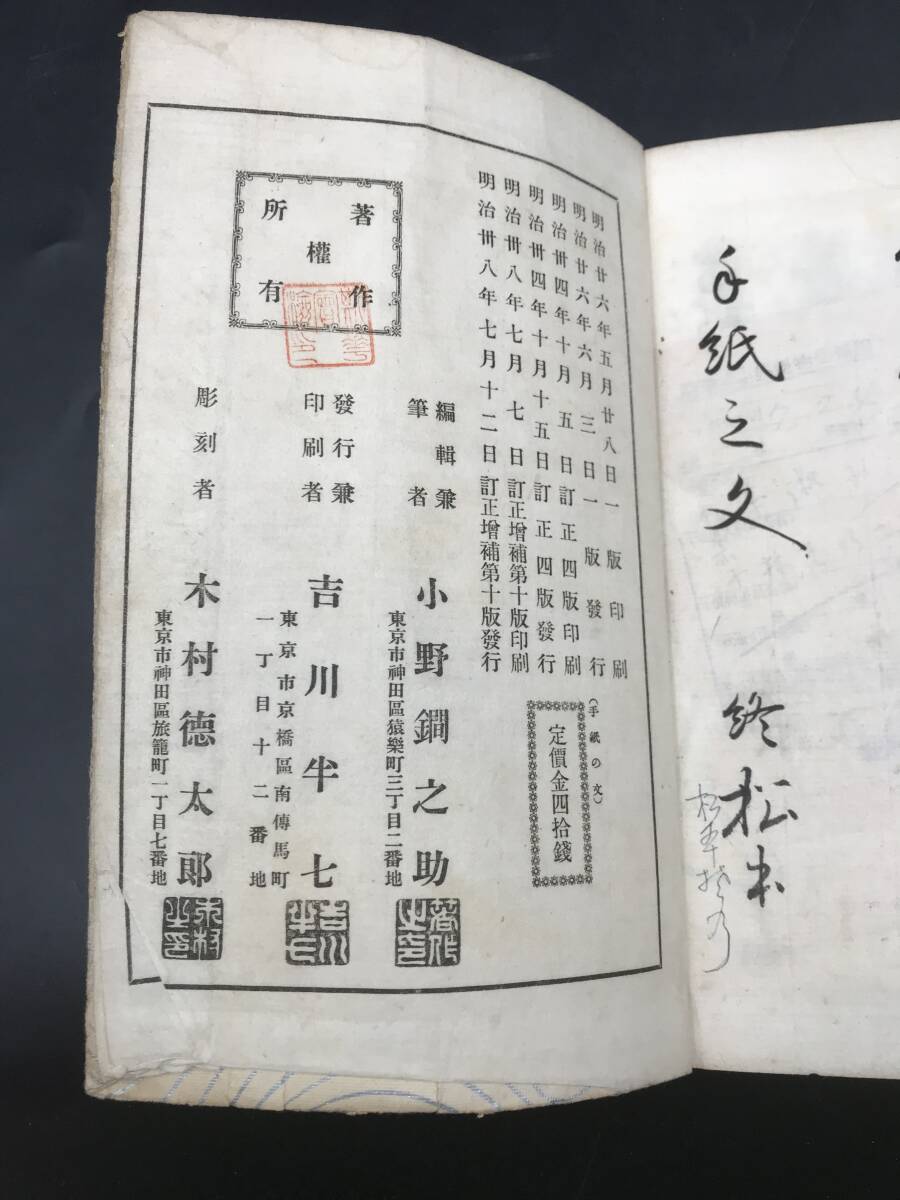 手紙之文 終
松本
明治廿六年五月廿八日一版印刷
明治廿六年六月三日一版發行
明治卅四年十月五日訂正四版印刷
明治卅四年十月十五日訂正四版發行
明治卅八年七月七日訂正增補第十版印刷
明治卅八年七月十二日訂正增補第十版發行
(手紙の文)
定價金四拾錢
著作
權
所有
編輯兼
筆者
小野鐧之助
東京市神田區猿樂町三丁目二番地
發行兼
印刷者
吉川半七
東京市京橋區南傳馬町
一丁目十二番地
吉川半七
彫刻者
木村德太郎
東京市神田區旅籠町一丁目七番地
木村之印